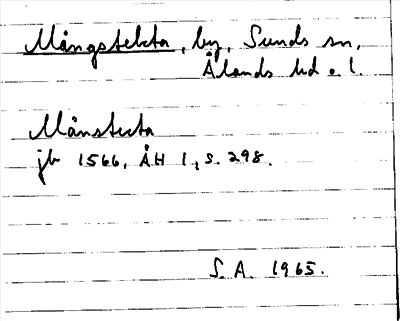 Mångstekta, by, Sunds sn,
Ålands hd o. l.
Månstecta
jb 1566, ÅH 1, s. 298.
S. A. 1965.